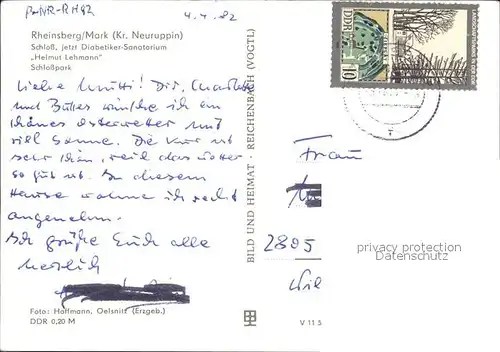 4.4.82
Rheinsberg/Mark (Kr. Neuruppin)
Schloß, jetzt Diabetiker-Sanatorium
„Helmut Lehmann"
Schloßpark
Liebe Mutti! Dir,
und wünsche ich ein
schönes Osterwetter und
viel Sonne. Die Kur ist
sehr schön, weil das Wetter
so gut ist. In diesem
Hause wohne ich recht
angenehm.
Ich grüße Euch alle
herzlich
Foto: Hoffmann, Oelsnitz (Erzgeb.)
DDR 0,20 M
BILD UND HEIMAT REICHENBACH (VOGTL)
V 11 5
DDR
10
Frau
2805
privacy protection
Datenschutz